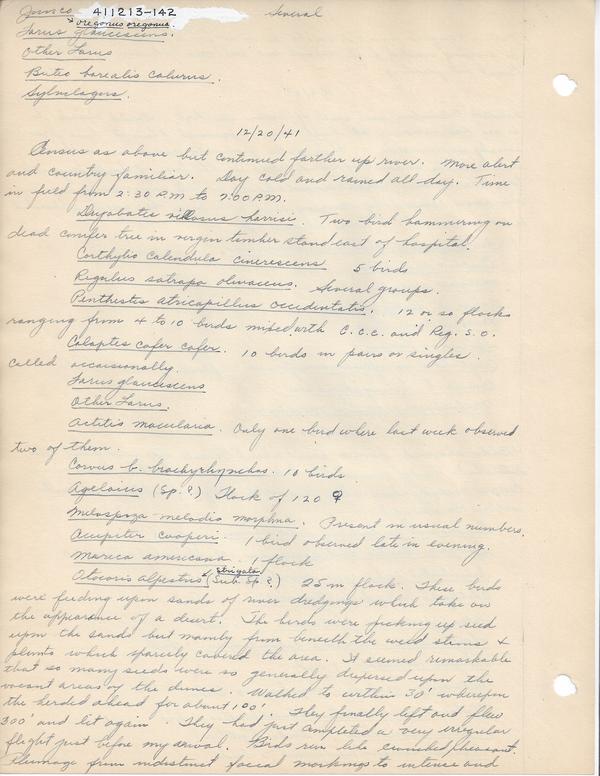 Junco 411213-142 Several
oregonus oregonus.
Larus glaucescens.
Other Larus
Buteo borealis calurus.
Sylvilagus.
12/20/41
Census as above but continued farther up river. More alert
and country familiar. Day cold and rained all day. Time
in field from 2:30 P.M to 7:00 P.M.
Dryobates villosus harrisi. Two bird hammering on
dead conifer tree in virgin timber stand east of hospital.
Corthylio calendula cinerescens 5 birds
Regulus satrapa olivaceus. Several groups.
Penthestes atricapillus occidentalis. 12 or so flocks
ranging from 4 to 10 birds mixed with C.C.C. and Reg. S.O.
Colaptes cafer cafer. 10 birds in pairs or singles.
Called occaisionally.
Larus glaucescens
Other Larus.
Actitis macularia. Only one bird where last week observed
two of them.
Corvus b. brachyrhynchos. 10 birds.
Agelaius (Sp.?) Flock of 120 ♀
Melospiza melodia morphna. Present in usual numbers.
Accipiter cooperi. 1 bird observed late in evening.
Mareca americana 1 flock
Otocoris alpestris strigata (Sub. Sp?) 25 in flock. These birds
were feeding upon sands of river dredgings which take on
the appearance of a desert. The birds were picking up seed
upon the sands but mainly from beneath the weed stems &
plants which sparcely covered the area. It seemed remarkable
that so many seeds were so generally dispersed upon the
vacant areas of the dunes. Walked to within 50' whereupon
the herded ahead for about 100'. They finally left and flew
300' and lit again. They had just completed a very irregular
flight just before my arrival. Birds run like crouched pheasant.
Plumage from indistinct facial markings to intense and